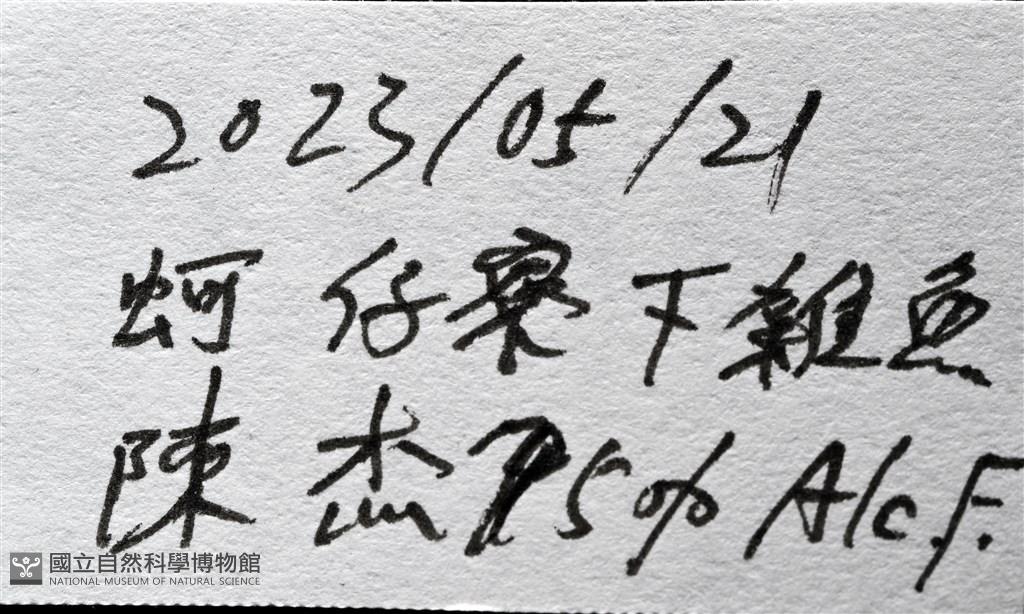 2023/05/21
蚵仔寮下雜魚
陳杰 75% Alc.F.
國立自然科學博物館
NATIONAL MUSEUM OF NATURAL SCIENCE